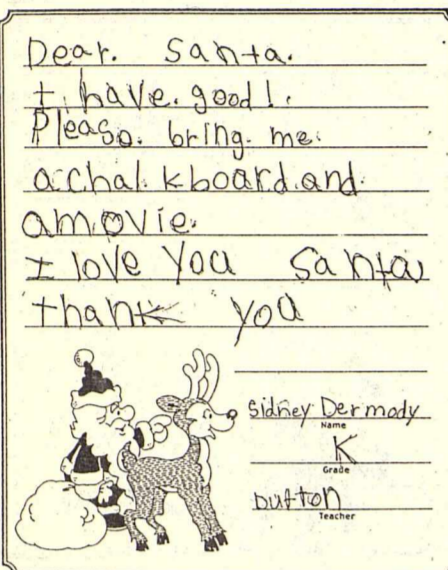 Dear. Santa.
I. have. good!.
Please. bring. me.
a.chal.kboard.and.
amovie.
I love you Santa
thank you
Sidney Dermody
Name
K
Grade
Dutton
Teacher